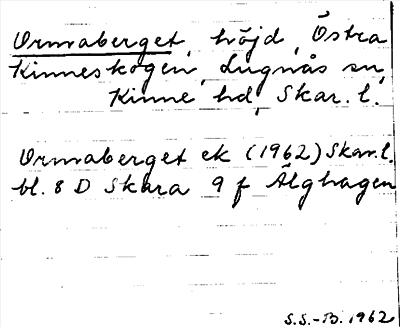 Ormaberget, höjd, Östra
Kinneskogen, Lugnås sn,
Kinne hd, Skar. l.
Ormaberget ek (1962) Skar. l.
bl. 8 D Skara 9 f Älghagen
S.S.-B. 1962